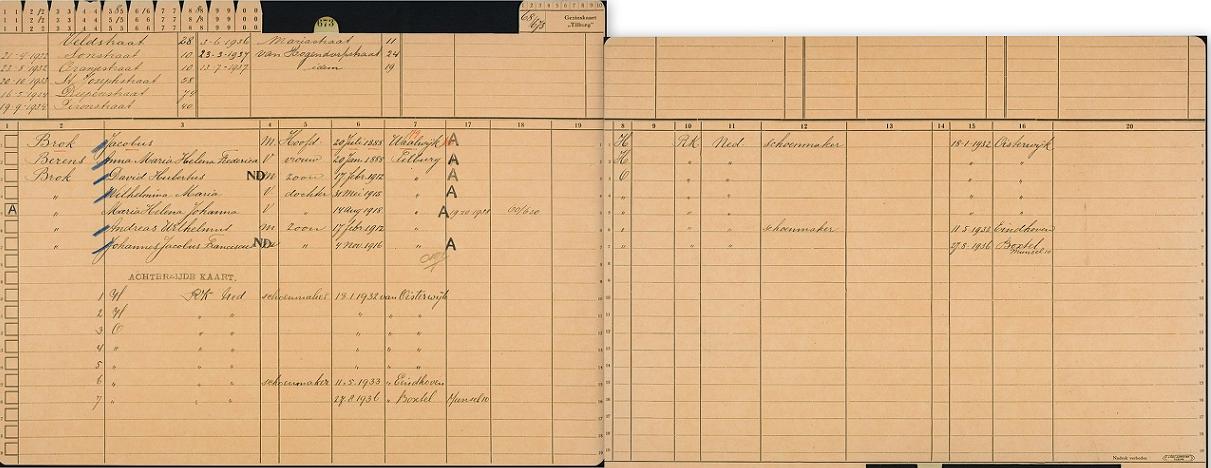 673
68/673
Gezinskaart
„Tilburg"
Veldstraat 28 3-6-1936 Mariastraat 11
21-4-1932 Sonstraat 10 23-3-1937 van Bogendorpstraat 24
23-8-1932 Oranjestraat 10 13-7-1937 idem 19
20-10-1933 St. Josephstraat 28
16-5-1934 74
19-9-1934 40
1 2 3 4 5 6 7 17 18 19
Brok Jacobus M Hoofd 20 Juli 1888 Waalwijk A
Berens Anna Maria Helena Frederica V vrouw 20 Jan. 1888 Tilburg A
Brok David Hubertus ND m zoon 17 Febr. 1912 " A
" Wilhelmina Maria V dochter 31 Mei 1915 " A
A " Maria Helena Johanna V " 14 Aug 1918 " A
" Andreas Wilhelmus m zoon 17 febr. 1912 "
" Johannes Jacobus Franciscus ND " 4 Nov. 1916 " A
ACHTERZIJDE KAART.
1 H RK Ned schoenmaker 18.1.1932 van Oisterwijk
2 H " " " " "
3 O " " " " "
4 " " " " " "
5 " " " " " "
6 " " " schoenmaker 11.5.1933 " Eindhoven
7 " " " 27.8.1936 " Boxtel Munsel 10
8 9 10 11 12 14 15 16 20
H RK Ned. schoenmaker 18-1-1932 Oisterwijk
H " " " "
O " " " "
" " " " "
" " " " "
" " " schoenmaker 11.5.1933 Eindhoven
" " " 27.8.1936 Boxtel
Munsel 10
Nadruk verboden